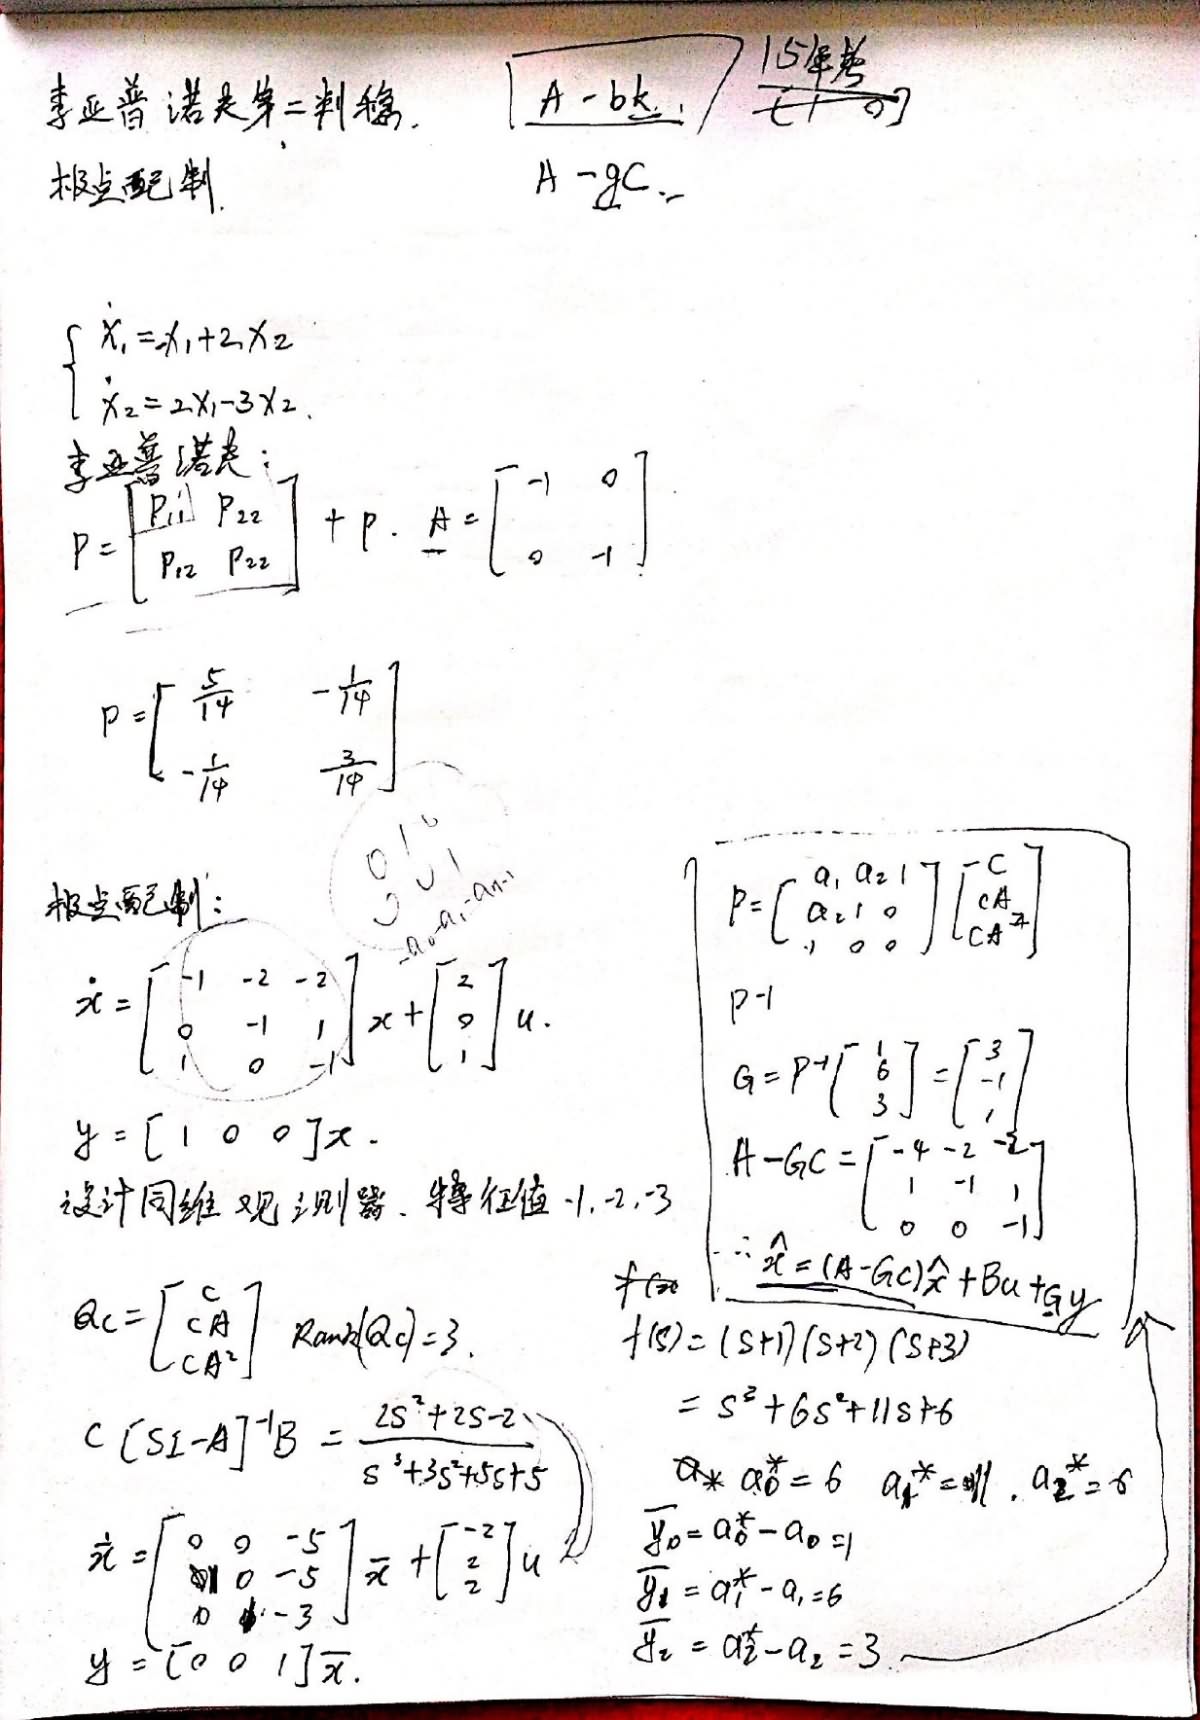 李亚普诺夫第二判稳.
A-bk
15年考
[1 0]
极点配制.
A-gC
ẋ₁=-x₁+2x₂
ẋ₂=2x₁-3x₂.
李亚普诺夫:
P=[P₁₁ P₂₂
P₁₂ P₂₂] + P. A=[-1 0
0 -1]
P=[5/14 -1/14
-1/14 3/14]
0 1 0
0 0 1
-a₀ -a₁ -aₙ₋₁
极点配制:
ẋ=[-1 -2 -2
0 -1 1
1 0 -1]x+[2
0
1]u.
y=[1 0 0]x.
设计同维观测器. 特征值-1,-2,-3
Qc=[C
CA
CA²] Rank(Qc)=3.
C[SI-A]⁻¹B = (2s²+2s-2)/(s³+3s²+5s+5)
ẋ=[0 0 -5
1 0 -5
0 1 -3]x̄+[-2
2
2]u
y=[0 0 1]x̄.
P=[a₁ a₂ 1
a₂ 1 0
1 0 0][C
CA
CA²]
P-1
G=P⁻¹[1
6
3]=[3
-1
1]
A-GC=[-4 -2 -2
1 -1 1
0 0 -1]
∴ x̂=(A-GC)x̂+Bu+Gy
f(s)=(s+1)(s+2)(s+3)
=s³+6s²+11s+6
a₀*=6 a₁*=11. a₂*=6
y̅₀=a₀*-a₀=1
y̅₁=a₁*-a₁=6
y̅₂=a₂*-a₂=3